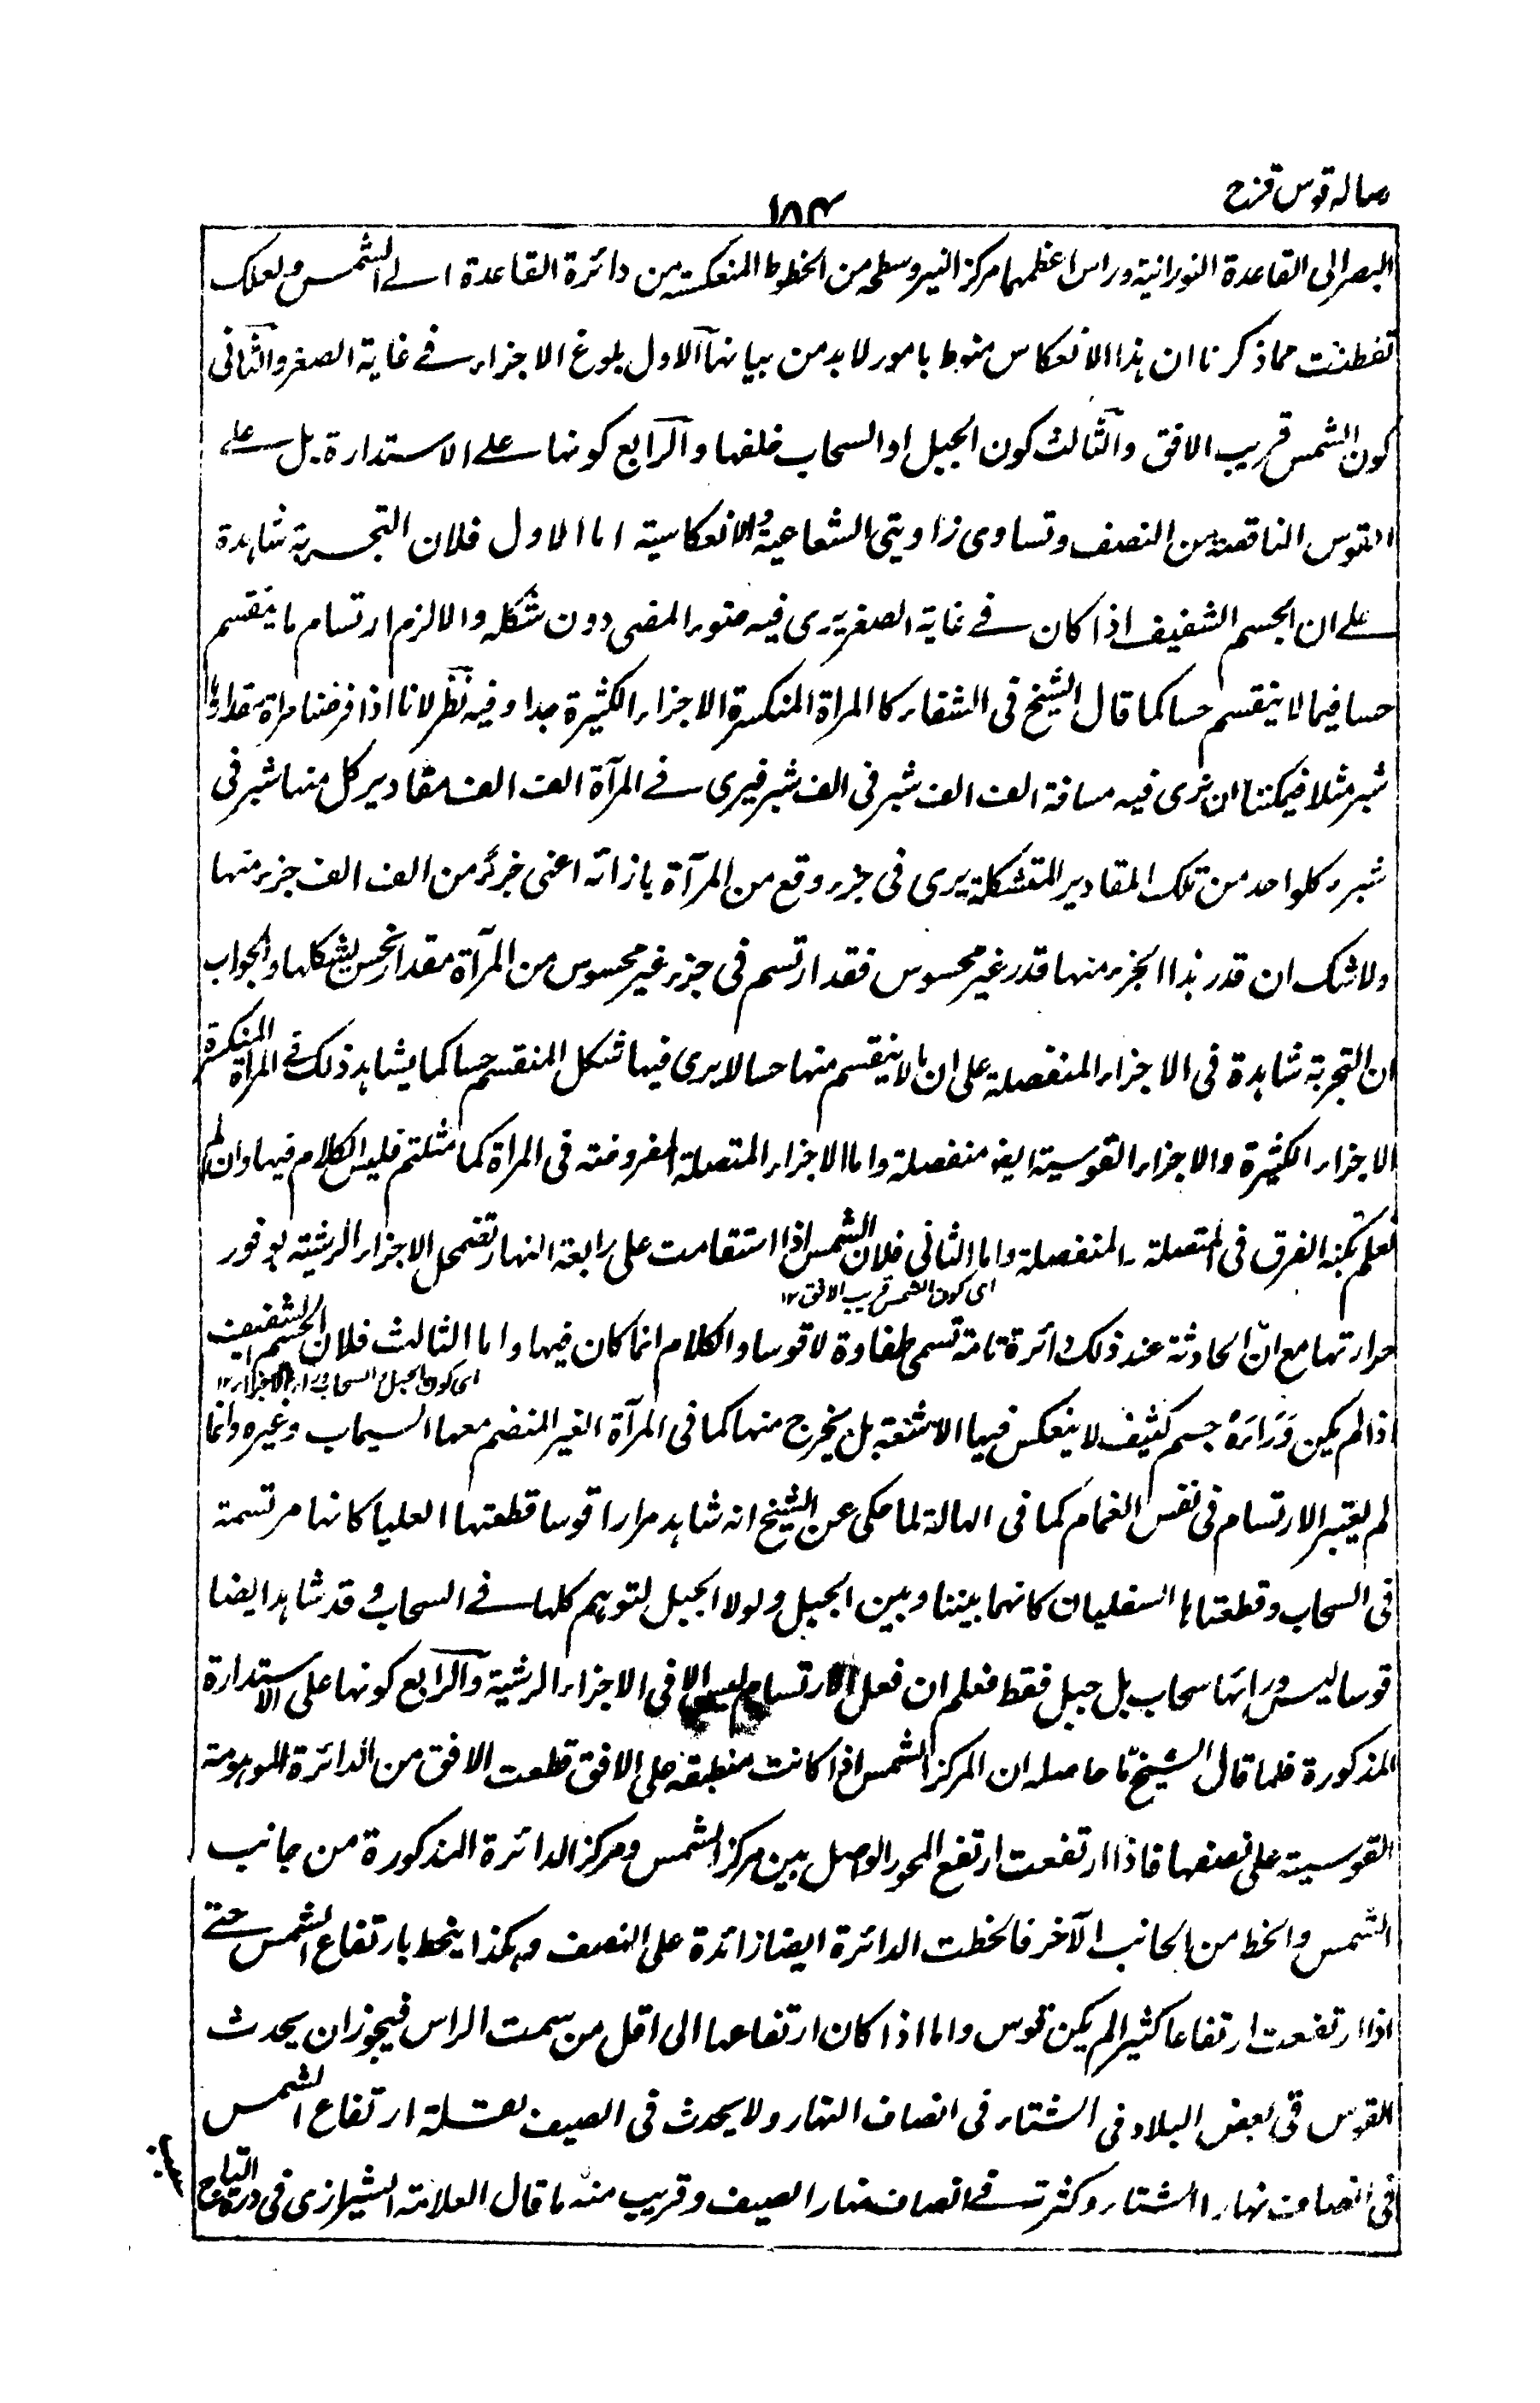 رساله قوس قزح
١٨٣
البصر الى القاعدة النورانية وراس اعظمهما مركز النير وسطحه من الخطوط المنعكسة من دائرة القاعدة الے الشمس ولعلك
تفطنت مما ذكرنا ان هذا الانعكاس منوط بامور لابد من بيانها الاول بلوغ الاجزاء فے غاية الصغر والثانى
كون الشمس قريب الافق والثالث كون الجبل او السحاب خلفها والرابع كونها علے الاستدارة بل علے
القوس الناقصة من النصف وتساوى زاويتى الشعاعية والانعكاسية اما الاول فلان التجربة شاهدة
علے ان الجسم الشفيف اذا كان فے غاية الصغر يرى فيه ضوء المضى دون شكله والا لزم ارتسام ما ينقسم
حسا فيما لا ينقسم حسا كما قال الشيخ فى الشفاء كالمراة المنكسرة الاجزاء الكثيرة جدا وفيه نظر لانا اذا فرضنا مراة مقدارها
شبر مثلا فيمكننا ان نرى فيه مسافة الف الف شبر فى الف شبر فيرى فے المرآة الف الف مقادير كل منها شبر فى
شبر وكلواحد من تلك المقادير المتشكلة يرى فى جزء وقع من المرآة بازائه اعنى جزء من الف الف جزء منها
ولا شك ان قدر هذا الجزء منها قدر غير محسوس فقد ارتسم فى جزء غير محسوس من المرآة مقدار نحس بشكلها والجواب
ان التجربة شاهدة فى الاجزاء المنفصلة على ان ما لا ينقسم منها حسا لا يرى فيها شكل المنقسم حسا كما يشاهد ذلك فے المراة المنكسرة
الاجزاء الكثيرة والاجزاء القوسية ايضا منفصلة واما الاجزاء المتصلة المفروضة فى المراة كما مثلتم فليس الكلام فيها وان لم
نعلم بكنه الفرق فى المتصلة ـ المنفصلة واما الثانى فلان الشمس اذا استقامت على رابعة النهار تضمحل الاجزاء الرشية بوفور
اى كون الشمس قريب الافق ١٢
حرارتها مع ان الحادثة عند ذلك دائرة تامة تسمى طفاوة لا قوسا والكلام انما كان فيها واما الثالث فلان الجسم الشفيف
اى كون الجبل او السحاب وراء الاجزاء ١٢
اذا لم يكن وراءه جسم كثيف لا ينعكس فيها الاشعة بل يخرج منها كما فى المرآة الغير المنضم معها السيماب وغيره وانما
لم يعتبر الارتسام فى نفس الغمام كما فى الهالة لما حكى عن الشيخ انه شاهد مرارا قوسا قطعتها العليا كانها مرتسمة
فى السحاب وقطعتاها السفليان كانهما بيننا وبين الجبل ولولا الجبل لتوهم كلها فے السحاب وقد شاهد ايضا
قوسا ليس ورائها سحاب بل جبل فقط فعلم ان فعل الارتسام ليس الا فى الاجزاء الرشية والرابع كونها على الاستدارة
المذكورة فلما قال الشيخ ما حاصله ان المركز الشمس اذا كانت منطبقة على الافق قطعت الافق من الدائرة الموهومة
القوسية على نصفها فاذا ارتفعت ارتفع المحور الواصل بين مركز الشمس ومركز الدائرة المذكورة من جانب
الشمس وانحط من الجانب الآخر فانحطت الدائرة ايضا زائدة على النصف وهكذا ينحط بارتفاع الشمس حتے
اذا ارتفعت ارتفاعا كثيرا لم يكن قوس واما اذا كان ارتفاعها الى اقل من سمت الراس فيجوز ان يحدث
القوس فى بعض البلاد فى الشتاء فى انصاف النهار ولا يحدث فى الصيف لقلة ارتفاع الشمس
فى انصاف نهار الشتاء وكثرته فے انصاف نهار الصيف وقريب منه ما قال العلامة الشيرازى فى درة التاج